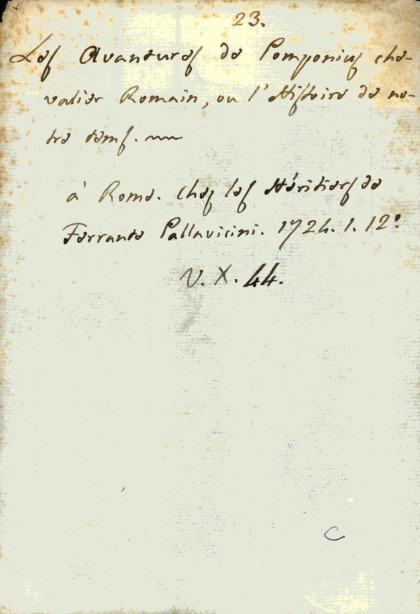 23.
Les Avantures de Pomponius che-
valier Romain, ou l'Histoire de no-
tre tems.
à Rome. chez les Héritiers de
Ferrante Pallavicini. 1724. 1. 12°.
V. X. 44.
C